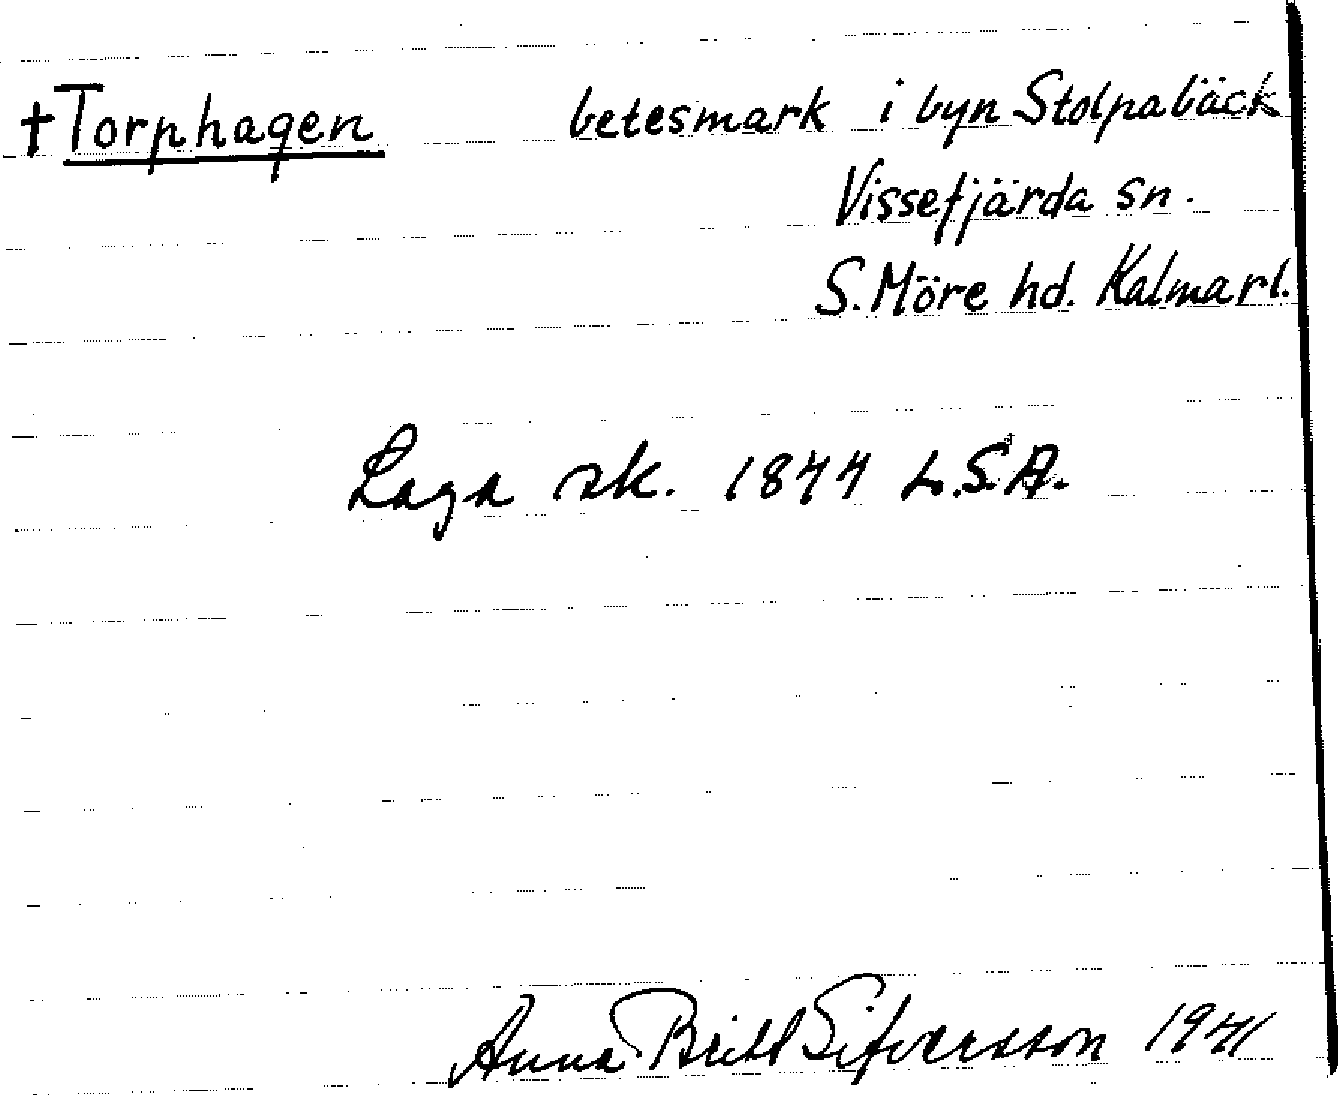 †Torphagen betesmark i byn Stolpabäck
Vissefjärda sn.
S. Möre hd. Kalmarl.
Laga sk. 1844 L.S.A.
Anna Britt Sifversson 1941